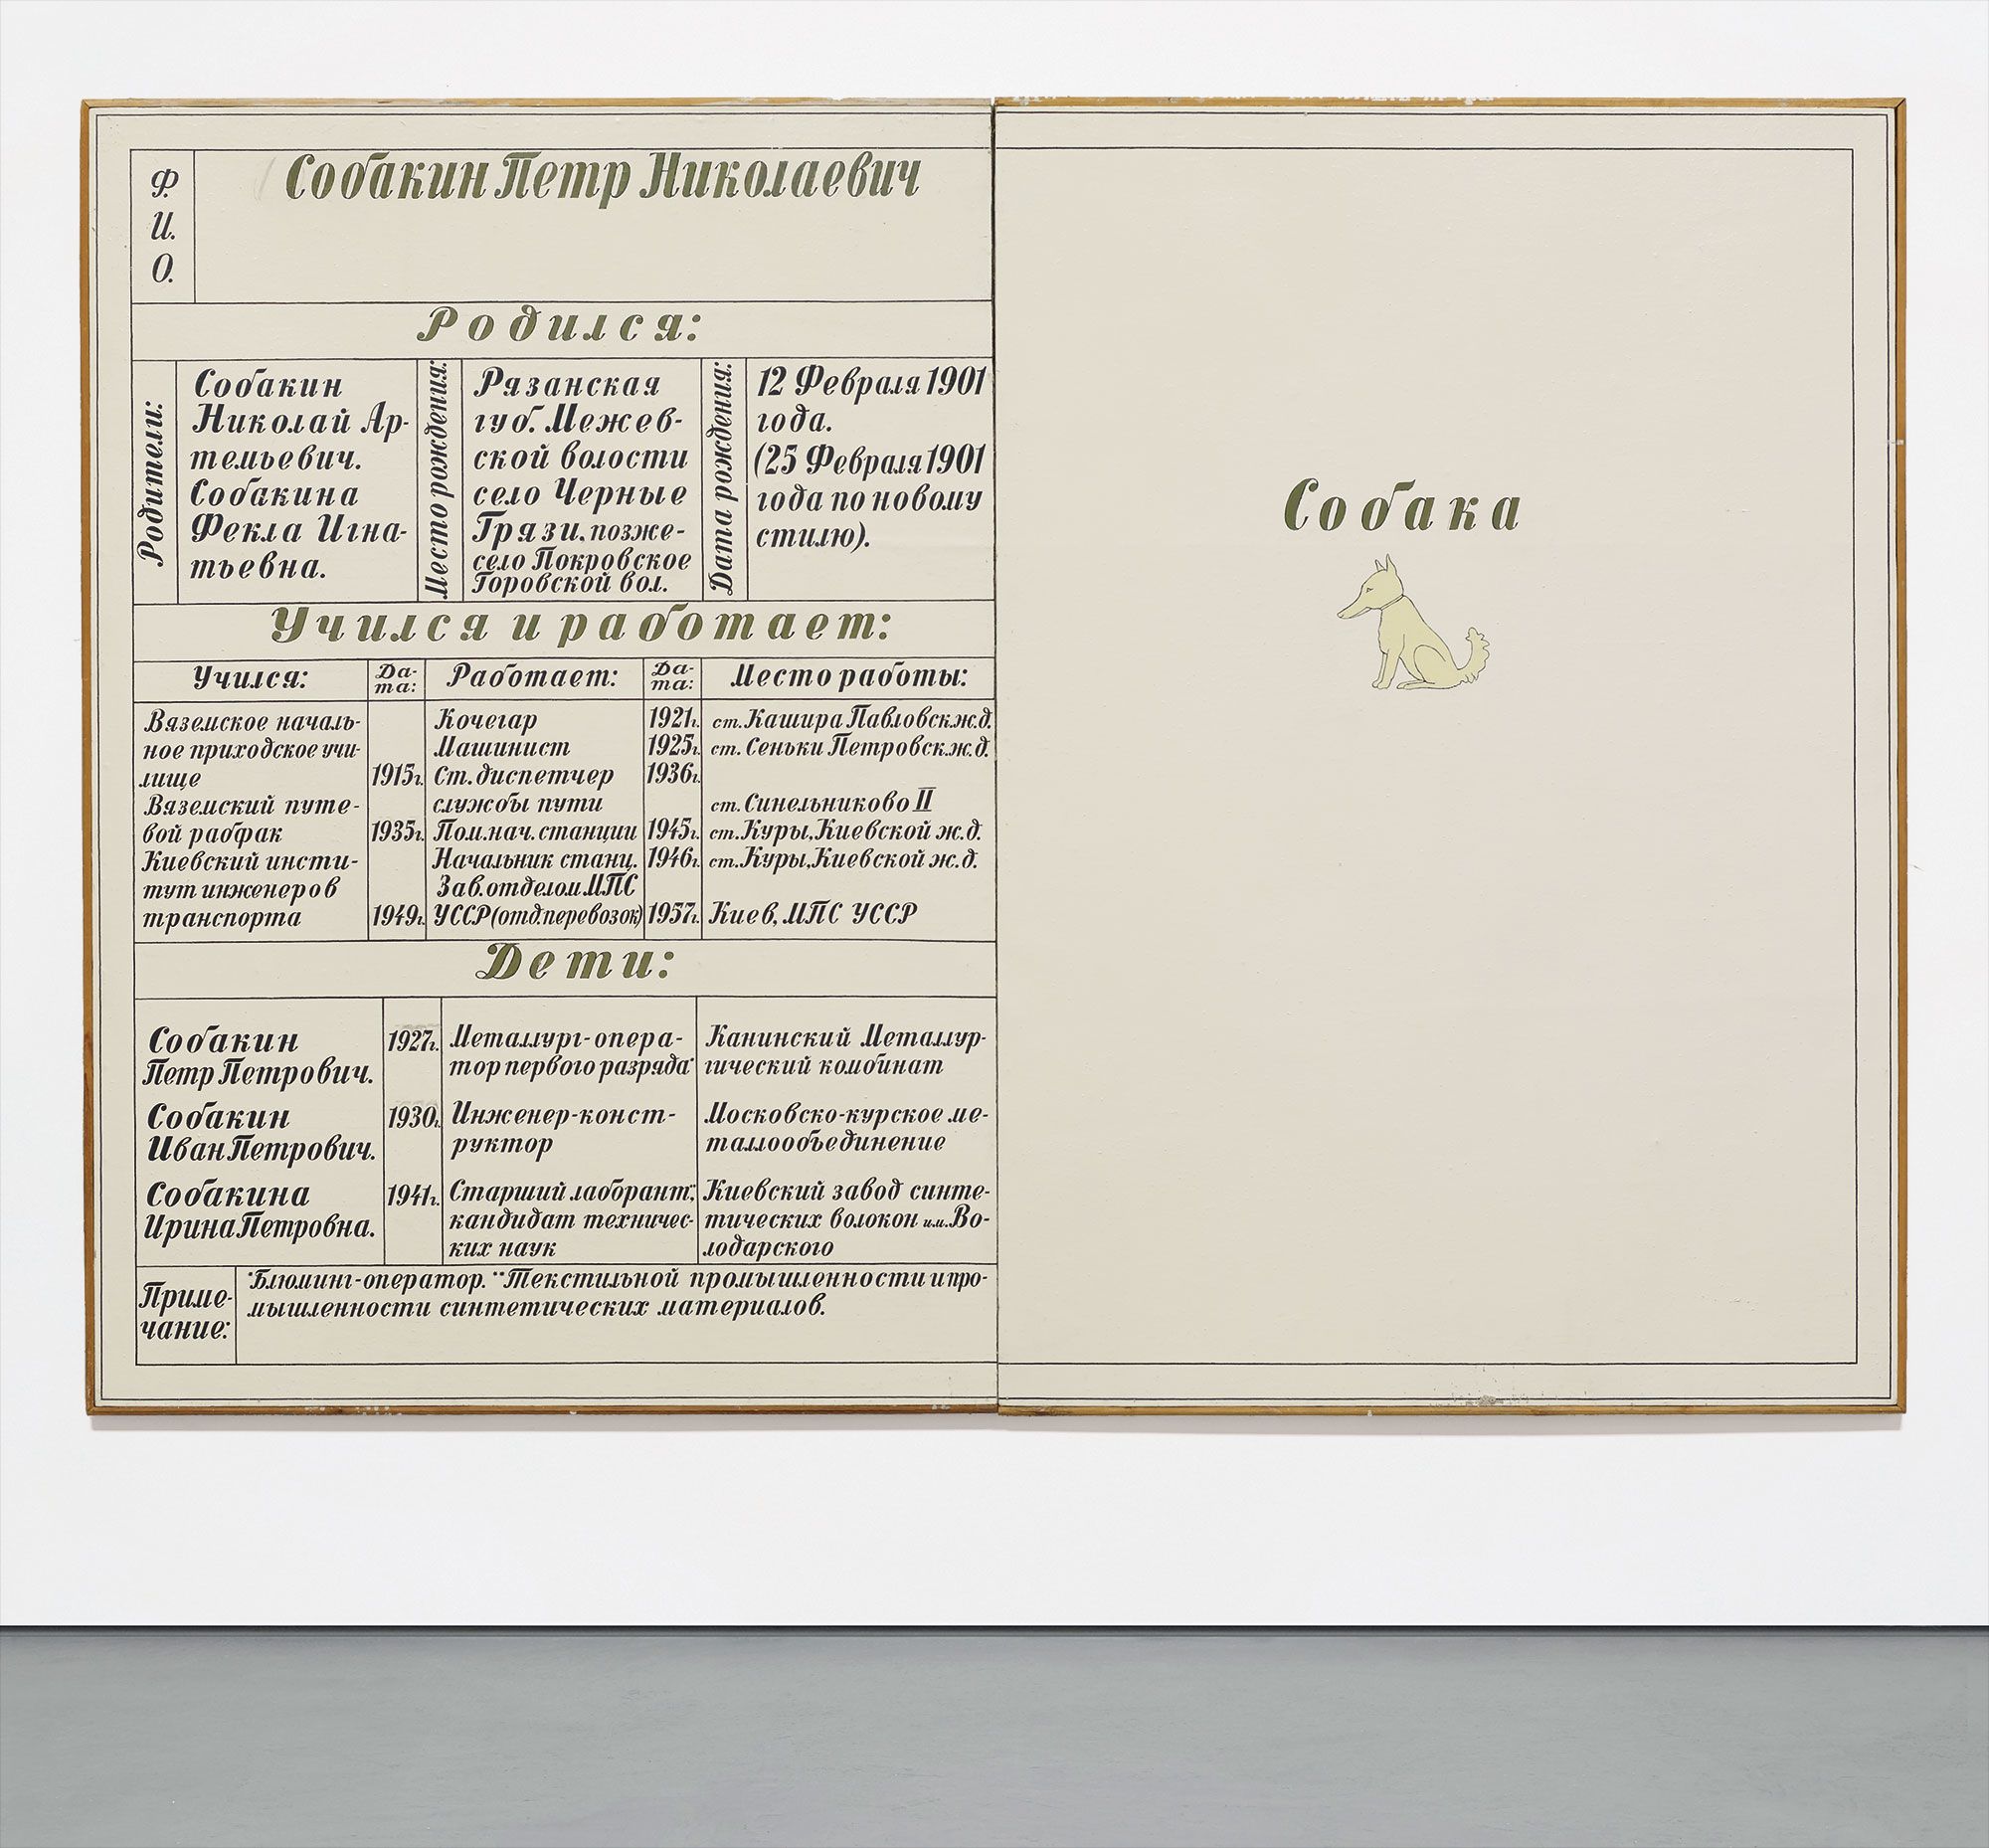 Ф.
И.
О.
Собакин Петр Николаевич
Родился:
Родители:
Собакин
Николай Ар-
темьевич.
Собакина
Фекла Игна-
тьевна.
Место рождения:
Рязанская
губ. Межев-
ской волости
село Черные
Грязи. позже-
село Покровское
Горовской вол.
Дата рождения:
12 Февраля 1901
года.
(25 Февраля 1901
года по новому
стилю).
Учился и работает:
Учился:
Да-
та:
Работает:
Да-
та:
Место работы:
Вяземское началь-
ное приходское учи-
лище 1915г.
Вяземский путе-
вой рабфак 1935г.
Киевский инсти-
тут инженеров
транспорта 1949г.
Кочегар 1921г. ст. Кашира Павловск.ж.д.
Машинист 1925г. ст. Сеньки Петровск.ж.д.
Ст. диспетчер 1936г.
службы пути ст. Синельниково II
Пом.нач.станции 1945г. ст. Куры, Киевской ж.д.
Начальник станц. 1946г. ст. Куры, Киевской ж.д.
Зав.отделом МПС
УССР (отд.перевозок) 1957г. Киев, МПС УССР
Дети:
Собакин
Петр Петрович.
1927г.
Металлург-опера-
тор первого разряда*
Канинский Металлур-
гический комбинат
Собакин
Иван Петрович.
1930г.
Инженер-конст-
руктор
Московско-курское ме-
таллообъединение
Собакина
Ирина Петровна.
1941г.
Старший лаборант**,
кандидат техничес-
ких наук
Киевский завод синте-
тических волокон им. Во-
лодарского
Приме-
чание:
*Блюминг-оператор. **Текстильной промышленности и про-
мышленности синтетических материалов.
Собака